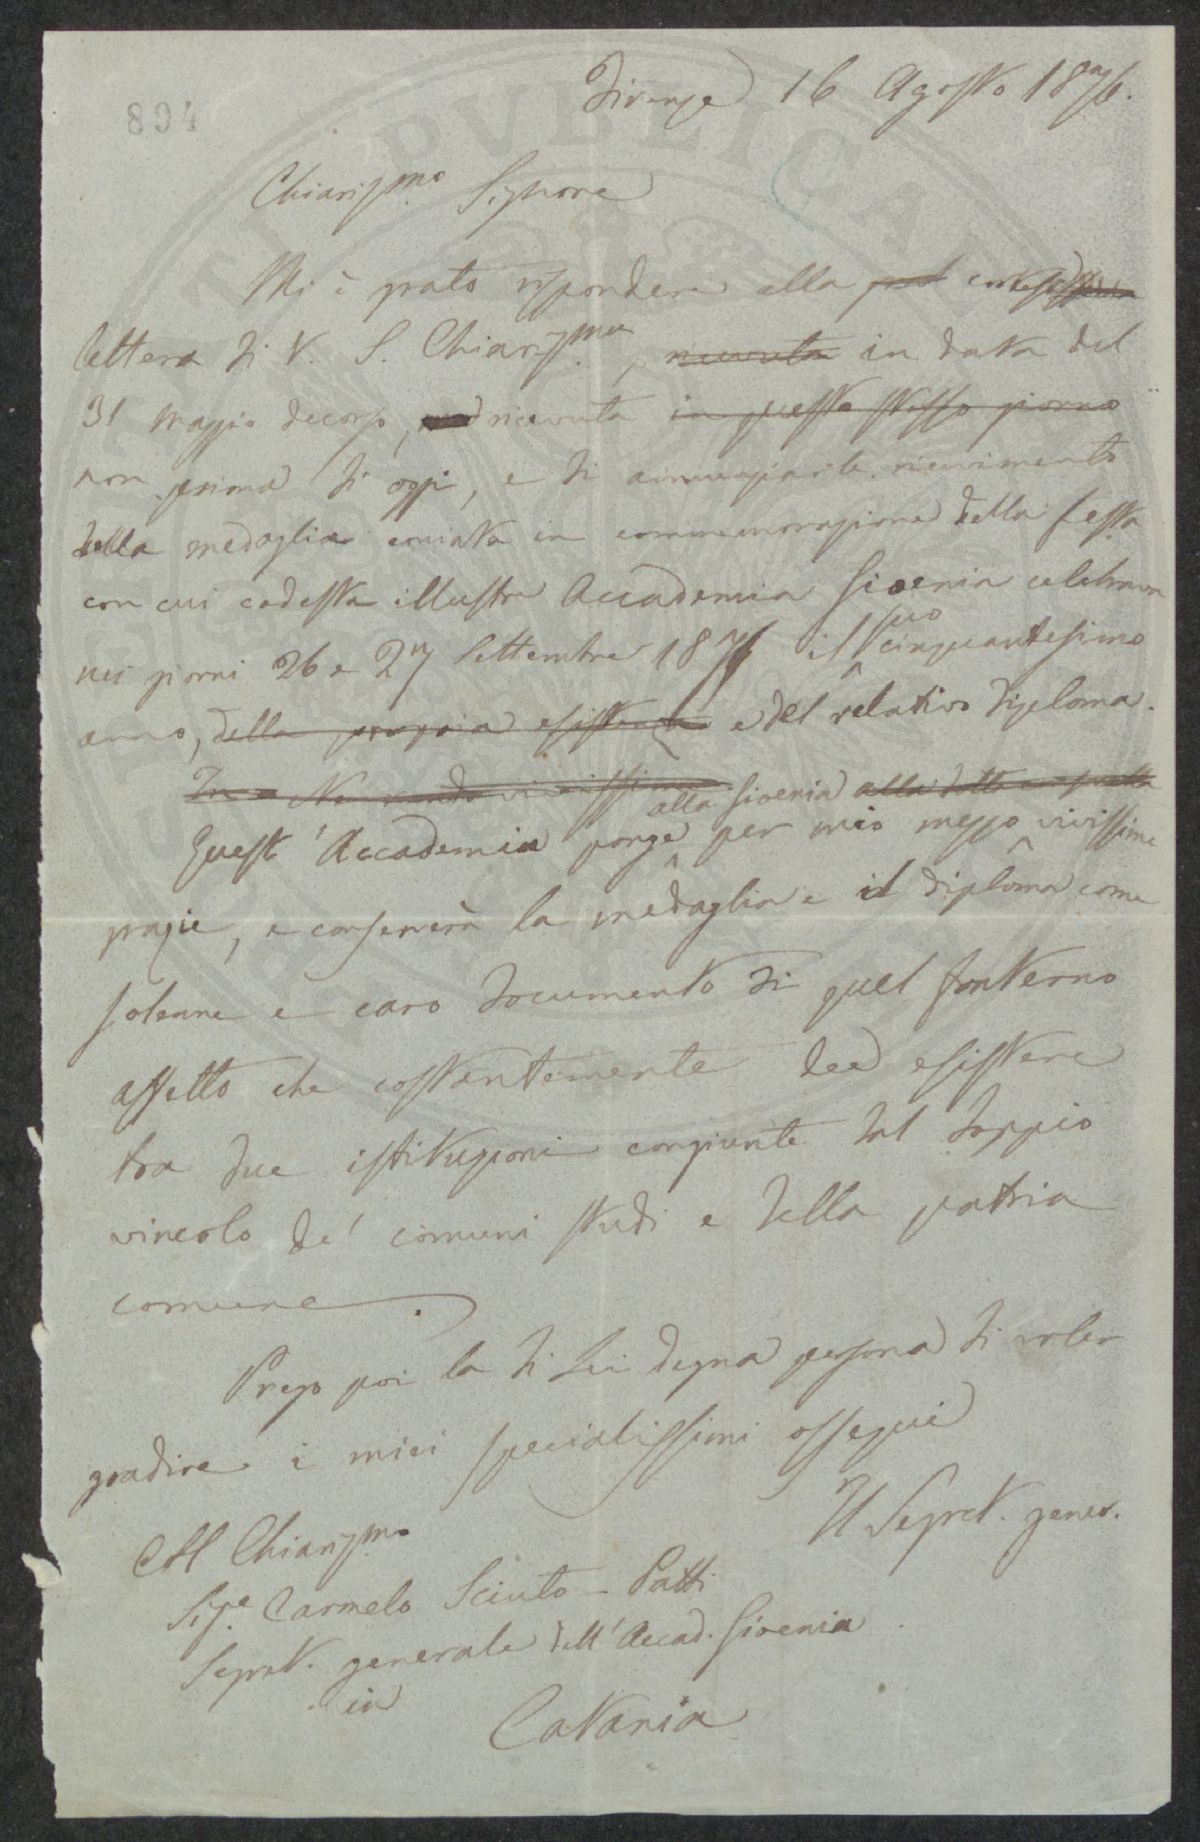 Firenze 16 Agosto 1876.
894
Chiariss.mo Signore
Mi è grato rispondere alla cortesissima
lettera di V. S. Chiariss.ma, ricevuta in data del
31 maggio decorso, ricevuta in questo stesso giorno
non prima di oggi, e di annunziarle ricevimento
della medaglia coniata in commemorazione della festa
con cui codesta illustre Accademia Gioenia celebrava
nei giorni 26 e 27 Settembre 187 il suo cinquantesimo
anno, della propria esistenza e del relativo diploma.
Ne rendo vivissime
Quest'Accademia porge alla Gioenia per mio mezzo vivissime
grazie, e conserverà la medaglia e il diploma come
solenne e caro documento di quel fraterno
affetto che costantemente dee esistere
tra due istituzioni congiunte dal doppio
vincolo de' comuni studi e della patria
comune.
Prego poi la di Lei degna persona di voler
gradire i miei specialissimi ossequi
Il Segret. gener.
Al Chiariss.mo
Sig.e Carmelo Sciuto-Patti
Segret. generale dell'Accad. Gioenia
in
Catania